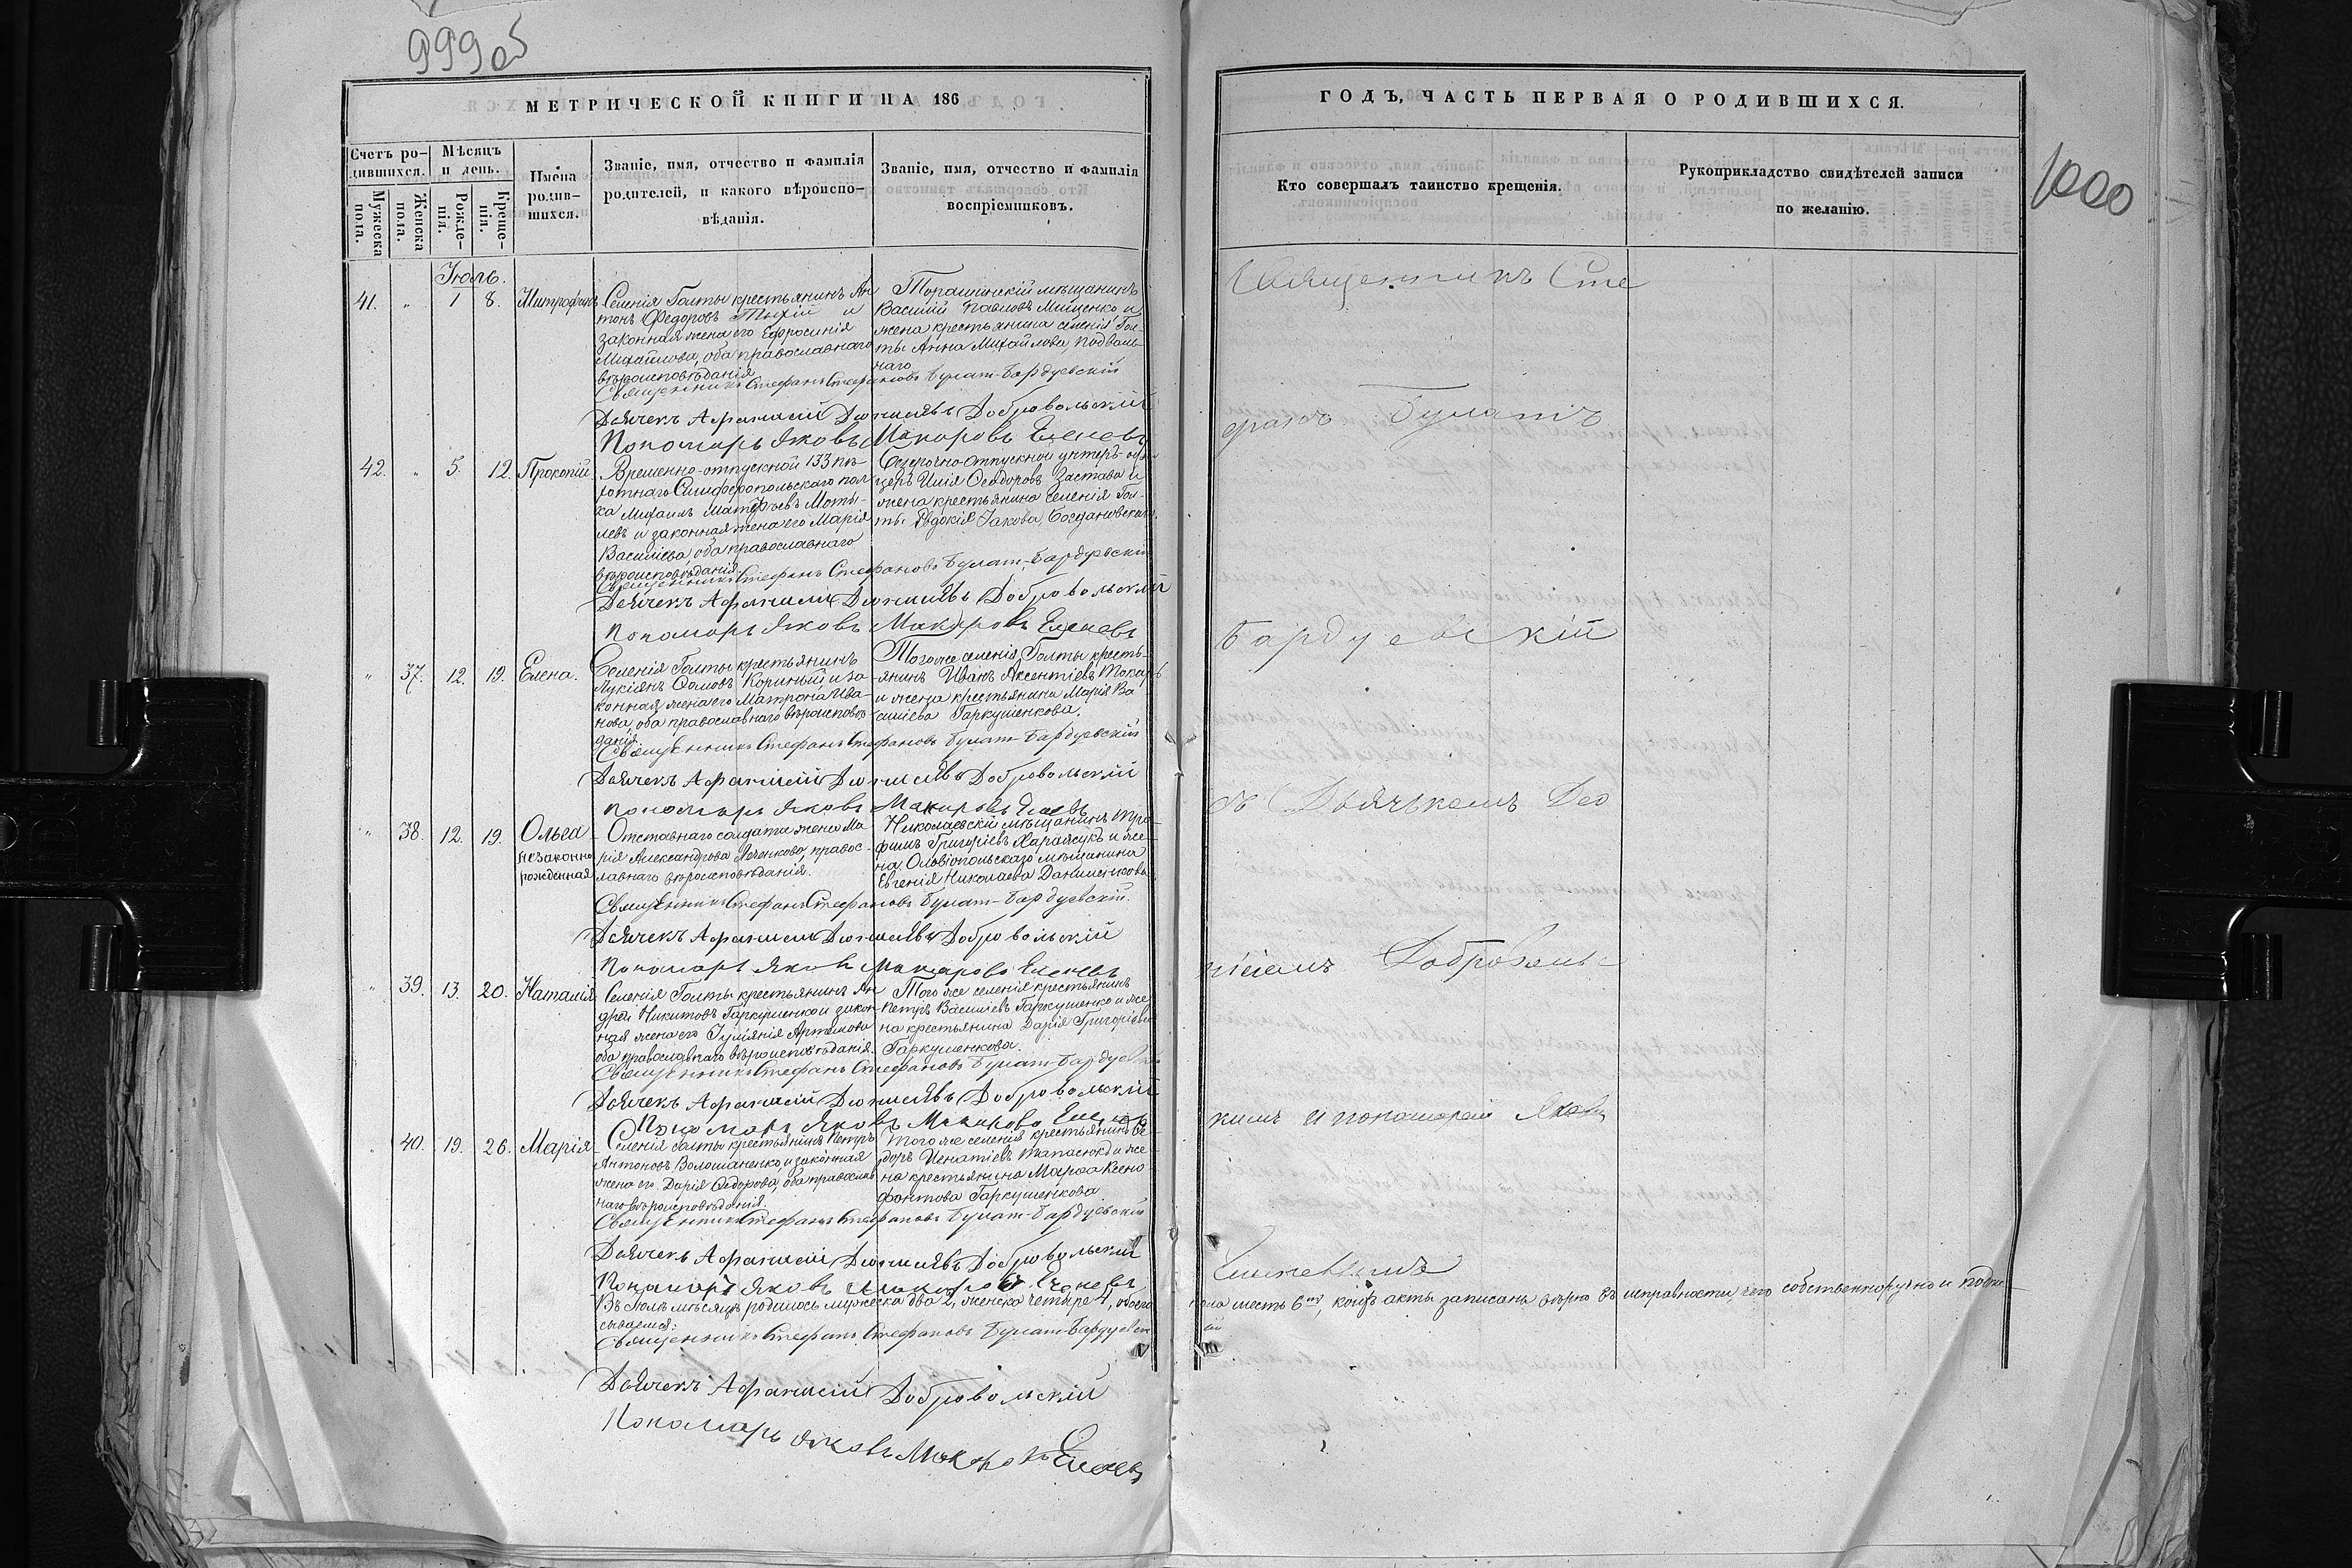 999 об
МЕТРИЧЕСКОЙ КНИГИ НА 186
Счетъ ро-
дившихся.
Мужеска
пола.
Женска
пола.
Мѣсяцъ
и день.
Рожде-
нія.
Креще-
нія.
Имена
родив-
шихся.
Званіе, имя, отчество и фамилія
родителей, и какого вѣроиспо-
вѣданія.
Званіе, имя, отчество и фамилія
воспріемниковъ.
Іюль.
41. " 1 8. Митрофанъ
Селенія Голты крестьянинъ Ан
тонъ Федоровъ Тыхій и
законная жена его Ефросинія
Михайлова, оба православнаго
вѣроисповѣданія
мѣщанинъ
Василій Павловъ Мищенко и
жена крестьянина селенія Гол-
ты Анна Михайлова, Подваль-
наго
Священникъ Стефанъ Стефановъ Булат-Бардуевскій
Дьячекъ Афанасій Добровольскій
Пономарь Яковъ Макаровъ
42. " 5. 12. Прокопій
Временно-отпускной 133 пѣ-
хотнаго Симферопольскаго пол
ка Михаилъ Матфѣевъ Моты-
левъ и законная жена его Марія
Василіева, оба православнаго
вѣроисповѣданія.
Безсрочно-отпускной унтеръ-офи
церъ Илія Феодоровъ Застава и
жена крестьянина селенія Гол-
ты Евдокія Іакова, Богдановская.
Священникъ Стефанъ Стефановъ Булат-Бардуевскій
Дьячекъ Афанасій Добровольскій
Пономарь Яковъ Макаровъ
" 37. 12. 19. Елена.
Селенія Голты крестьянинъ
Лукіянъ Фомовъ и за
конная жена его Матрона Ива-
нова, оба православнаго вѣроисповѣ
данія.
Того же селенія Голты кресть-
янинъ Иванъ Аксентіевъ Токарь
и жена крестьянина Марія Ва
силіева Гаркушенкова.
Священникъ Стефанъ Стефановъ Булат-Бардуевскій
Дьячекъ Афанасій Добровольскій
Пономарь Яковъ Макаровъ
" 38. 12. 19. Ольга
незаконно
рожденная
Отставнаго солдата жена Ма
рія Александрова правос-
лавнаго вѣроисповѣданія.
Николаевскій мѣщанинъ Тро-
фимъ Григоріевъ и же-
на Ольвіопольскаго мѣщанина
Евгенія Николаева Даниленкова
Священникъ Стефанъ Стефановъ Булат-Бардуевскій.
Дьячекъ Афанасій Добровольскій
Пономарь Яковъ Макаровъ
" 39. 13. 20. Наталія
Селенія Голты крестьянинъ Ан
дрей Никитовъ Гаркушенко и закон
ная жена его Іуліянія Артемова
оба православнаго вѣроисповѣданія.
Того же селенія крестьянинъ
Петръ Василіевъ Гаркушенко и же
на крестьянина Дарія Григоріева
Гаркушенкова.
Священникъ Стефанъ Стефановъ Булат-Бардуевскій
Дьячекъ Афанасій Добровольскій
Пономарь Яковъ Макаровъ
" 40. 19. 26. Марія
Селенія Голты крестьянинъ Петръ
Антоновъ Волошаненко, и законная
жена его Дарія Федорова, оба православ
наго вѣроисповѣданія
Того же селенія крестьянинъ Ѳе-
доръ Игнатіевъ и же-
на крестьянина Марфа Ксено-
фонтова Гаркушенкова
Священникъ Стефанъ Стефановъ Булат-Бардуевскій
Дьячекъ Афанасій Добровольскій
Пономарь Яковъ Макаровъ
Въ Іюль мѣсяцѣ родилось мужеска два 2, женска четыре 4, обоего
пола шесть 6ть, коихъ акты записаны вѣрно въ исправности, чего собственноручно и подпи-
сываемся:
Священникъ Стефанъ Стефановъ Булат-Бардуевскій
Дьячекъ Афанасій Добровольскій
Пономарь Яковъ Макаровъ
ГОДЪ, ЧАСТЬ ПЕРВАЯ О РОДИВШИХСЯ.
1000
Кто совершалъ таинство крещенія.
Рукоприкладство свидѣтелей записи
по желанію.
Священникъ Сте
фанъ Булатъ
Бардуевскій
съ Дьячькомъ
Добровольс
кимъ и пономаремъ Яковом